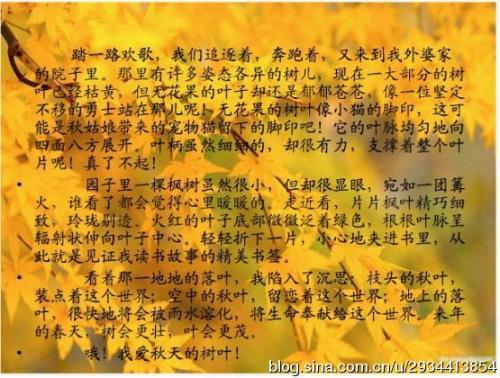 踏一路欢歌，我们追逐着，奔跑着，又来到我外婆家
的院子里。那里有许多姿态各异的树儿，现在一大部分的树
叶已经枯黄，但无花果的叶子却还是郁郁苍苍，像一位坚定
不移的勇士站在那儿呢！无花果的树叶像小猫的脚印，这可
能是秋姑娘带来的宠物猫留下的脚印吧！它的叶脉均匀地向
四面八方展开。叶柄虽然细细的，却很有力，支撑着整个叶
片呢！真了不起！
园子里一棵枫树虽然很小，但却很显眼，宛如一团篝
火，谁看了都会觉得心里暖暖的。走近看，片片枫叶精巧细
致、玲珑剔透。火红的叶子底部微微泛着绿色，根根叶脉呈
辐射状伸向叶子中心。轻轻折下一片，小心地夹进书里，从
此就是见证我读书故事的精美书签。
看着那一地地的落叶，我陷入了沉思：枝头的秋叶，
装点着这个世界；空中的秋叶，留恋着这个世界；地上的落
叶，很快地将会被雨水溶化，将生命奉献给这个世界。来年
的春天，树会更壮，叶会更茂。
哦！我爱秋天的树叶！
blog.sina.com.cn/u/2934413854